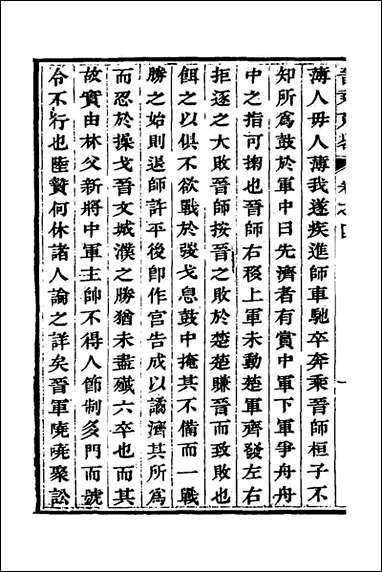 薄人毋人薄我遂疾進師車馳卒奔乘晉師桓子不
知所為鼓於軍中曰先濟者有賞中軍下軍爭舟舟
中之指可掬也晉師右移上軍未動楚軍齊發左右
拒逐之大敗晉師按晉之敗於楚楚賺晉而致敗也
餌之以俱不欲戰於發戈息鼓中掩其不備而一戰
勝之始則退師許平後卽作宮告成以譎濟其所為
而忍於操戈晉文城濮之勝猶未盡殲六卒也而其
故實由林父新將中軍主帥不得人節制多門而號
令不行也陸贄何休諸人論之詳矣晉軍嘵嘵聚訟